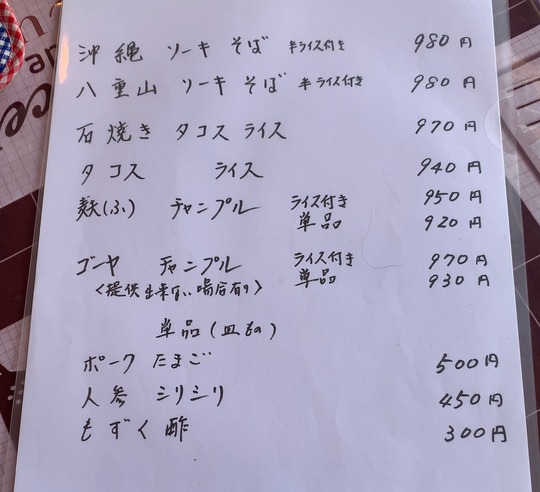 沖縄 ソーキ そば 半ライス付き 980円
八重山 ソーキ そば 半ライス付き 980円
石焼き タコスライス 970円
タコス ライス 940円
麩(ふ) チャンプル ライス付き 950円
単品 920円
ゴーヤ チャンプル ライス付き 970円
<提供出来ない場合有り> 単品 930円
単品(皿もの)
ポーク たまご 500円
人参 シリシリ 450円
もずく 酢 300円